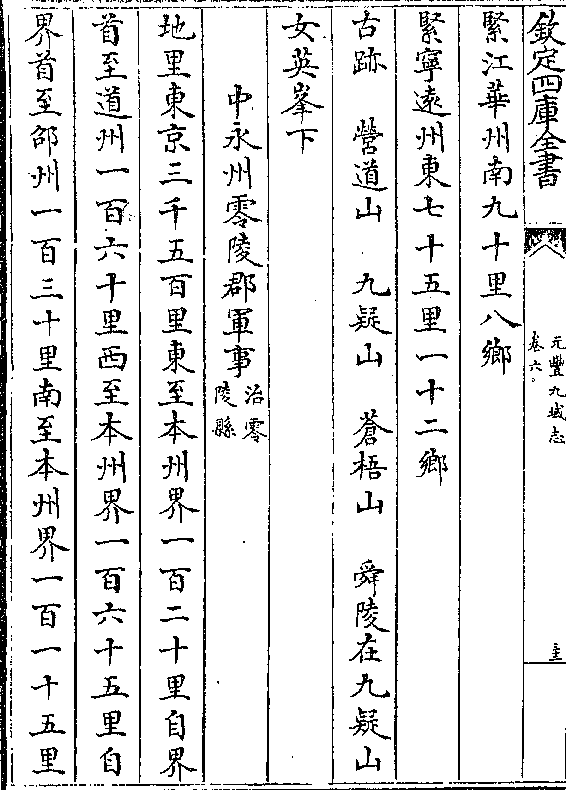 欽定四庫全書
元豐九域志
卷六
緊江華州南九十里八鄉
緊寧遠州東七十五里一十二鄉
古跡 營道山 九疑山 蒼梧山 舜陵在九疑山
女英峯下
中永州零陵郡軍事治零陵縣
地里東京三千五百里東至本州界一百二十里自界
首至道州一百六十里西至本州界一百六十五里自
界首至邵州一百三十里南至本州界一百一十五里